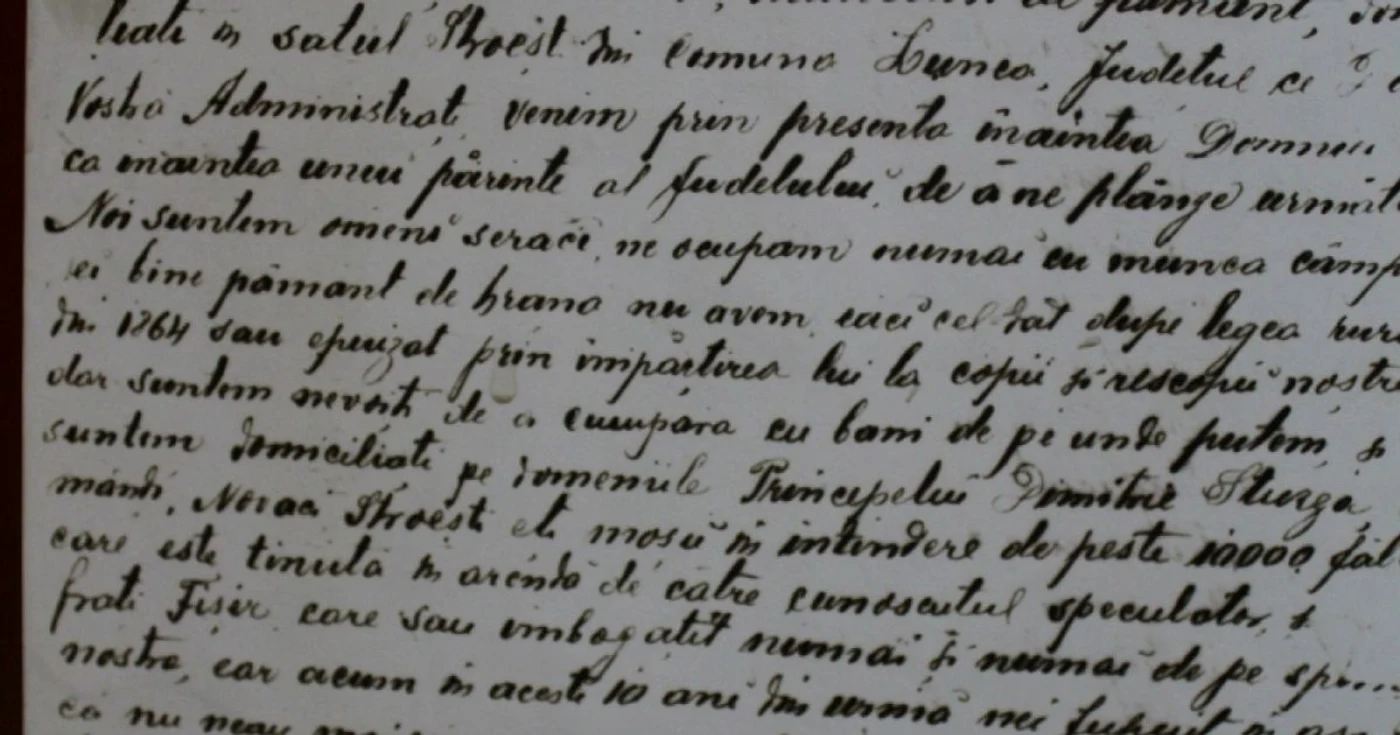 de pamant,
in satul Stroesti din Comuna Lunca, Judetul ce
Vostrá Administrati, venim prin presenta inaintea Domnu
ca inaintea unui părinte al Judetului, de á ne plânge urmát
Noi suntem omeni seraci, ne ocupam numai cu munca câmp
ei bine pămant de hrana nu avem, caci cel dat dupe legea rur
din 1864 sau epuizat prin impărtirea lui la copii si rescopii nostr
dar suntem nevoiti de a cumpara cu bani de pe unde putem, si
suntem domiciliati pe domeniile Principelui Dimitrie Sturza,
mândi, Novaci Stroesti etc mosii in intindere de peste 10000 făl
care este tinută in arendă de către cunoscutul speculator, s
frati Fisir care sau imbogatit numai si numai de pe sp
nostra, ear acum in acesti 10 ani din urmă nei
ca nu neau mai